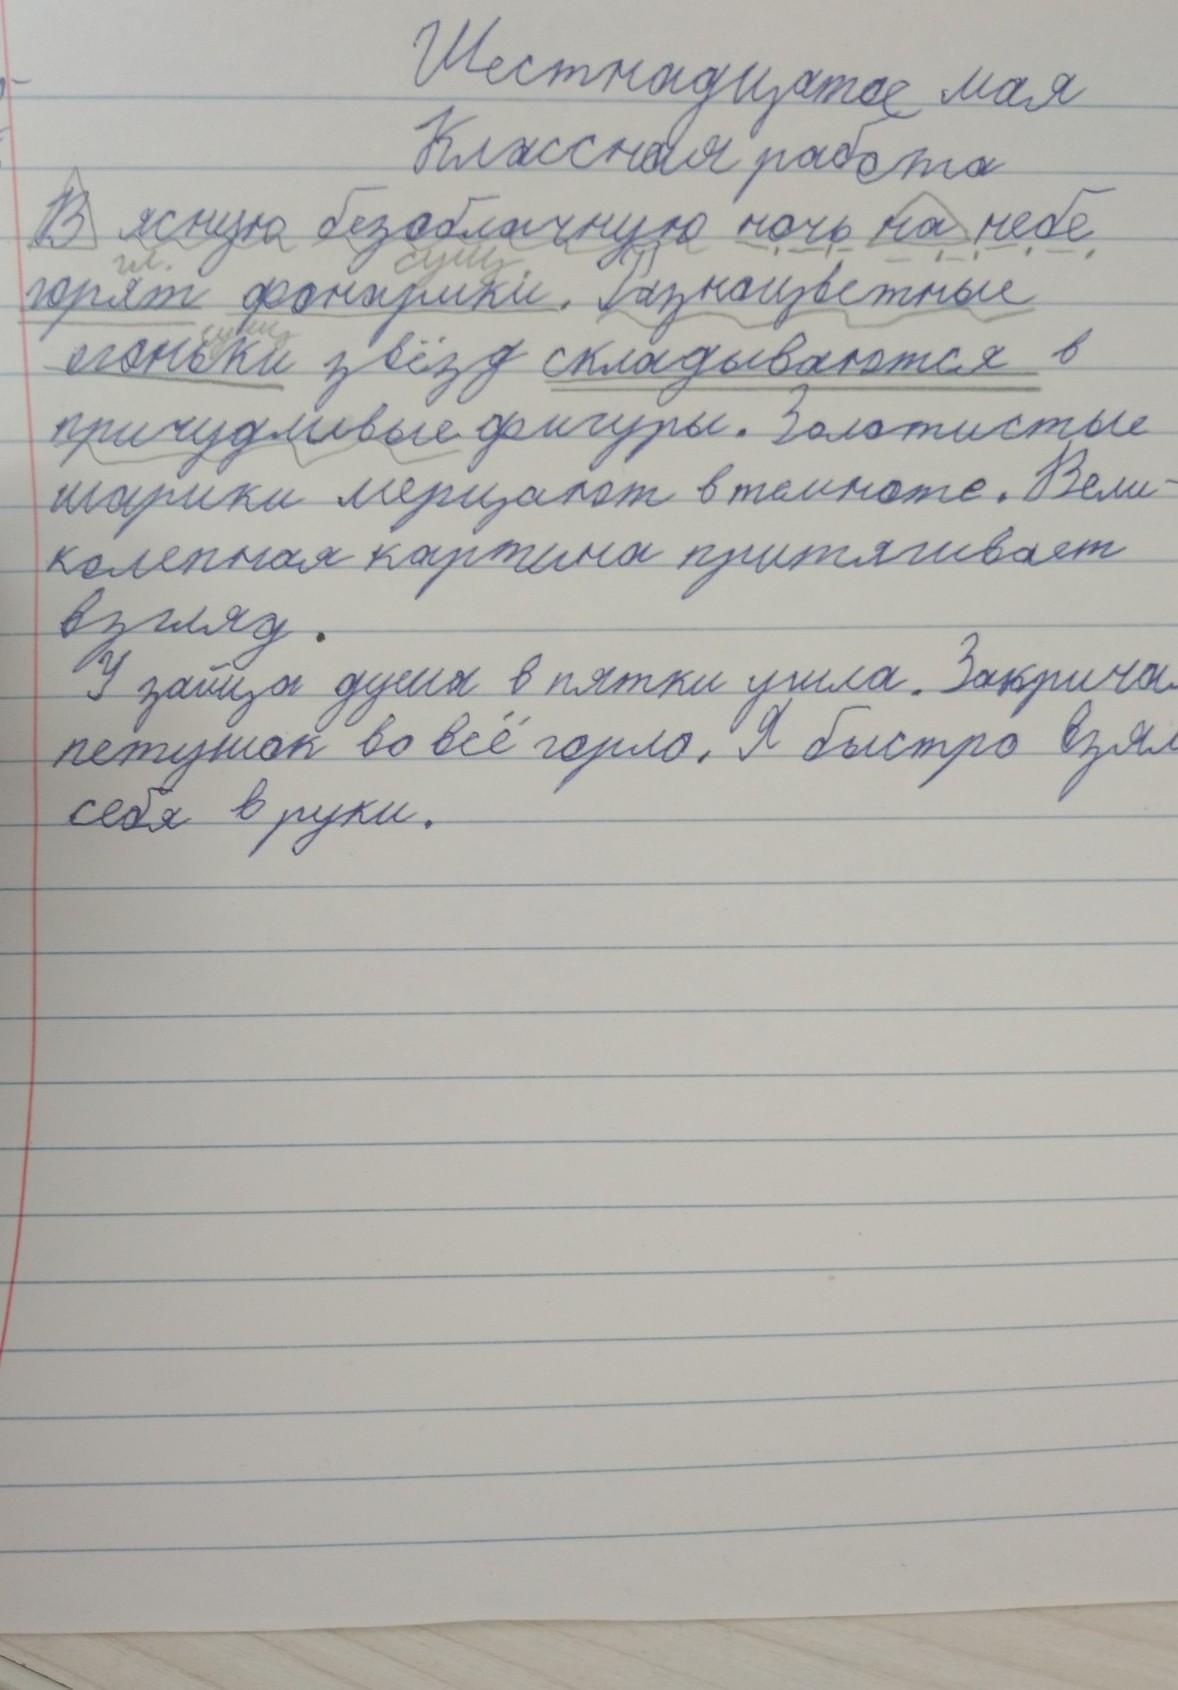 Шестнадцатое мая
Классная работа
В ясную безоблачную ночь на небе
гл. сущ.
горят фонарики. Разноцветные
сущ
огоньки звёзд складываются в
причудливые фигуры. Золотистые
шарики мерцают в темноте. Вели-
колепная картина притягивает
взгляд.
У зайца душа в пятки ушла. Закрича
петушок во всё горло. Я быстро взял
себя в руки.